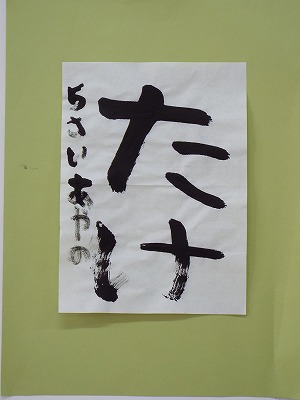 たけ
ちさいあやの